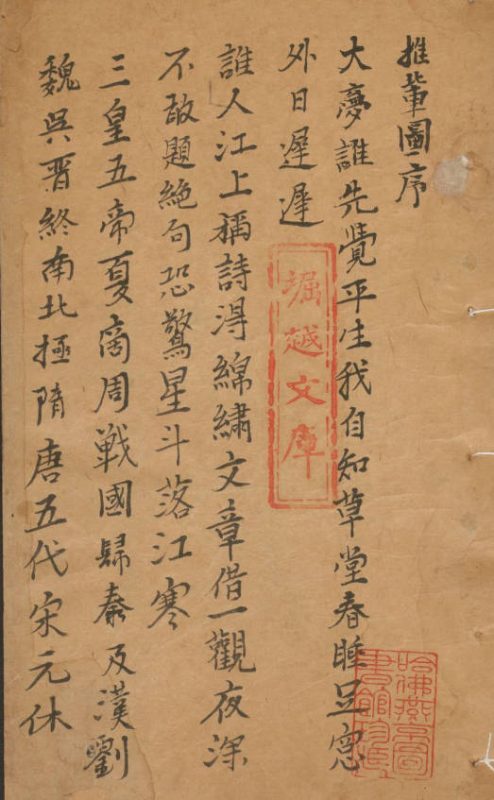 推輩圖序
大夢誰先覺平生我自知草堂春睡足窓
外日遲遲
誰人江上稱詩得綿繡文章借一觀夜深
不敢題絶句恐驚星斗落江寒
三皇五帝夏商周戰國歸秦及漢劉
魏吳晋終南北極隋唐五代宋元休
堀越文庫
哈佛燕京圖
書館珍藏